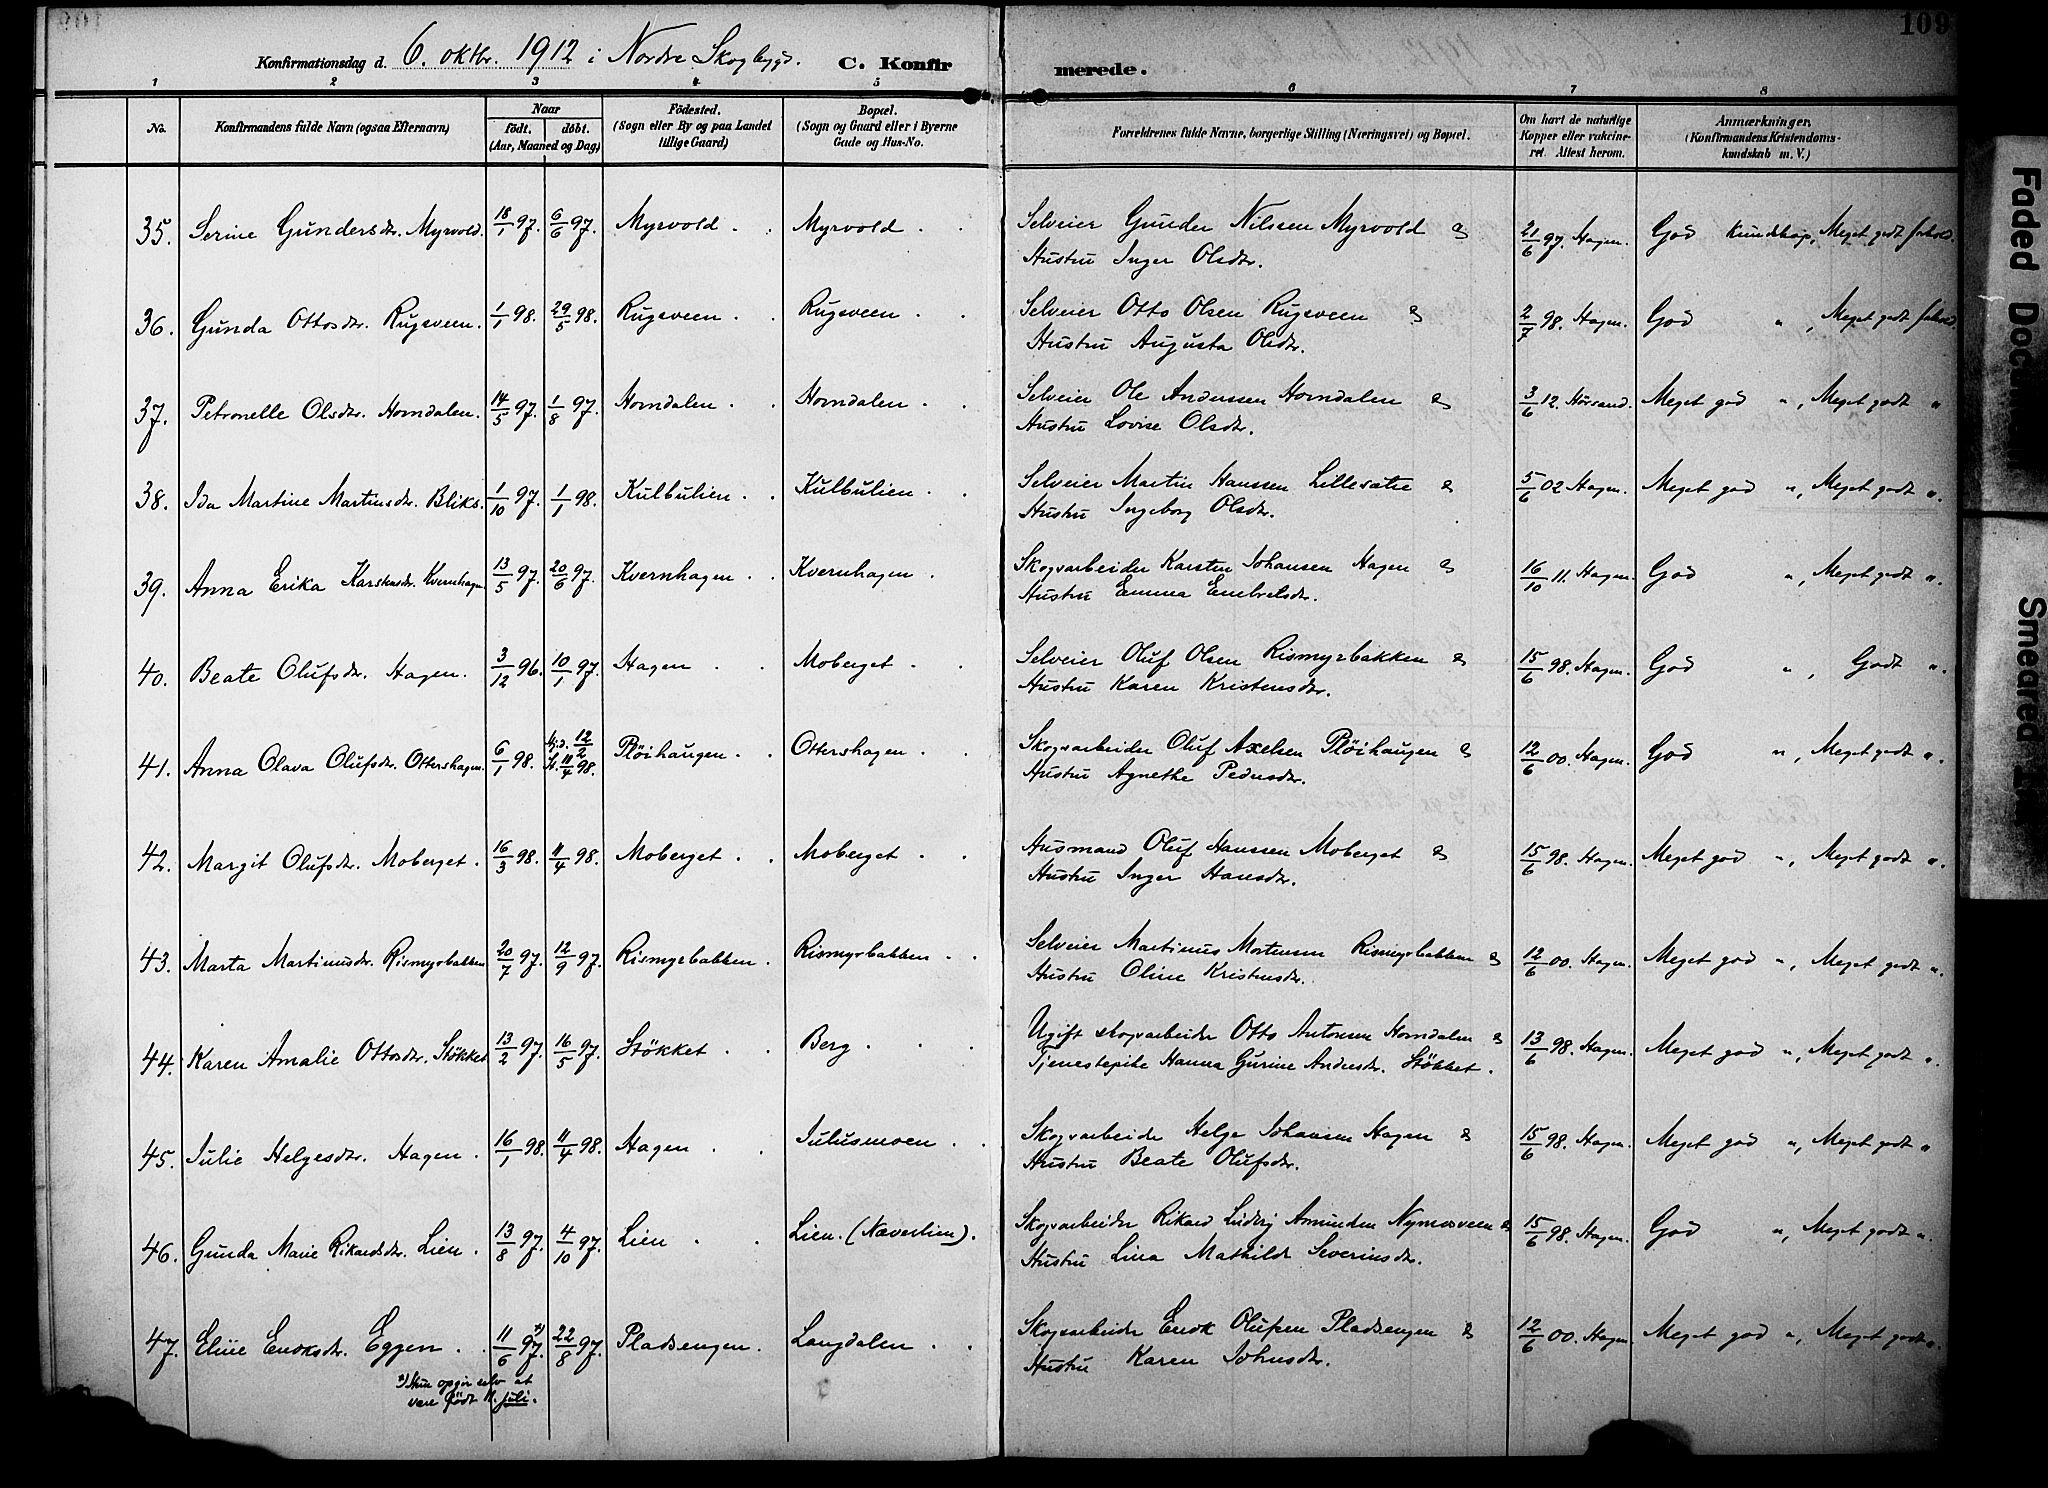 109
Konfirmationsdag d. 6. oktbr. 1912 i Nordre Skogbygd. C. Konfirmerede.
1 2 3 4 5 6 7 8
No. Konfirmandens fulde Navn (ogsaa Efternavn) Naar født. døbt. (Aar, Maaned og Dag) Födested. (Sogn eller By og paa Landet tillige Gaard) Bopæl. (Sogn og Gaard eller i Byerne Gade og Hus-No. Forældrenes fulde Navne, borgerlige Stilling (Næringsvei) og Bopæl. Om havt de naturlige Kopper eller vaccineret. Attest herom. Anmærkninger. (Konfirmandens Kristendomskundskab m. V.)
35. Serine Gundersdr. Myrvold. 18/1 97. 6/6 97. Myrvold . . Myrvold . . Selveier Gunder Nilssen Myrvold & 21/6 97. Hagen. God Kundskap, Meget godt forhold.
Hustru Inger Olsdtr.
36. Gunda Ottosdr. Rugsveen. 1/1 98. 29/5 98. Rugsveen . . Rugsveen . . Selveier Otto Olsen Rugsveen & 2/7 98. Hagen. God " , Meget godt forhold.
Hustru Augusta Olsdtr.
37. Petronelle Olsdtr. Horndalen. 14/5 97. 1/8 97. Horndalen . . Horndalen . . Selveier Ole Anderssen Horndalen & 3/6 12. Hørsand. Meget god " , Meget godt "
Hustru Lovise Olsdtr.
38. Ida Martine Martinsdr. Bliks. 1/10 97. 1/1 98. Kulbulien . . Kulbulien . . Selveier Martin Hanssen Lillesætre & 5/6 02 Hagen. Meget god " , Meget godt ".
Hustru Ingeborg Olsdtr.
39. Anna Erika Karstensdr. Kvernhagen 13/5 97. 20/6 97. Kvernhagen . . Kvernhagen . Skogsarbeider Karsten Johansen Hagen & 16/10 11. Hagen. God " , Meget godt ".
Hustru Emma Embretsdr.
40. Beate Olufsdr. Hagen. 3/12 96. 10/1 97. Hagen . . Moberget . . Selveier Oluf Olsen Rismyrbakken & 15/6 98. Hagen. God " , Godt ".
Hustru Karen Kristensdtr.
41. Anna Olava Olufsdr. Ottershagen. 6/1 98. Hjd. 12/2 St. 11/4 98. Pløihaugen . . Ottershagen . . Skogsarbeider Oluf Axelsen Pløihaugen & 12/6 00. Hagen. God " , Meget godt ".
Hustru Agnethe Pedersdtr.
42. Margit Olufsdr. Moberget. 16/3 98. 11/4 98. Moberget . . Moberget . . Husmand Oluf Hanssen Moberget & 15/6 98. Hagen. Meget god " , Meget godt ".
Hustru Inger Hansdtr.
43. Marta Martinusdr. Rismyrbakken 20/7 97. 12/9 97. Rismyrbakken . Rismyrbakken . . Selveier Martinus Mortensen Rismyrbakken & 12/6 00. Hagen. Meget god " , Meget godt ".
Hustru Oline Kristensdtr.
44. Karen Amalie Ottosdr. Støkket 13/2 97. 16/5 97. Støkket . . Berg . . . Ugift skogsarbeider Otto Antonsen Horndalen & 13/6 98. Hagen. Meget god " , Meget godt ".
Tjenestepike Hanna Gurine Andersdr. Støkket .
45. Julie Helgesdtr. Hagen . 16/1 98. 11/4 98. Hagen . . Julusmoen . . Skogsarbeider Helge Johansen Hagen & 15/6 98. Hagen. Meget god " , Meget godt "
Hustru Beate Olufsdtr.
46. Gunda Marie Rikardsdr. Lien . 13/8 97. 4/10 97. Lien . . Lien. (Næverlien). Skogsarbeider Rikard Ludvig Amundsen Nymosveen & 15/6 98. Hagen. God " , Meget godt ".
Hustru Lina Mathilde Severinsdtr.
47. Eline Enoksdr. Eggen . . 11/6 97. *) 22/8 97. Pladsengen . Langdalen . . Skogsarbeider Enok Olufsen Pladsengen & 12/6 00. Hagen. Meget god " , Meget godt ".
Hustru Karen Johnsdtr.
*) Hun opgir selv at
være født 11. juli.
Faded Document
Smeared Ink